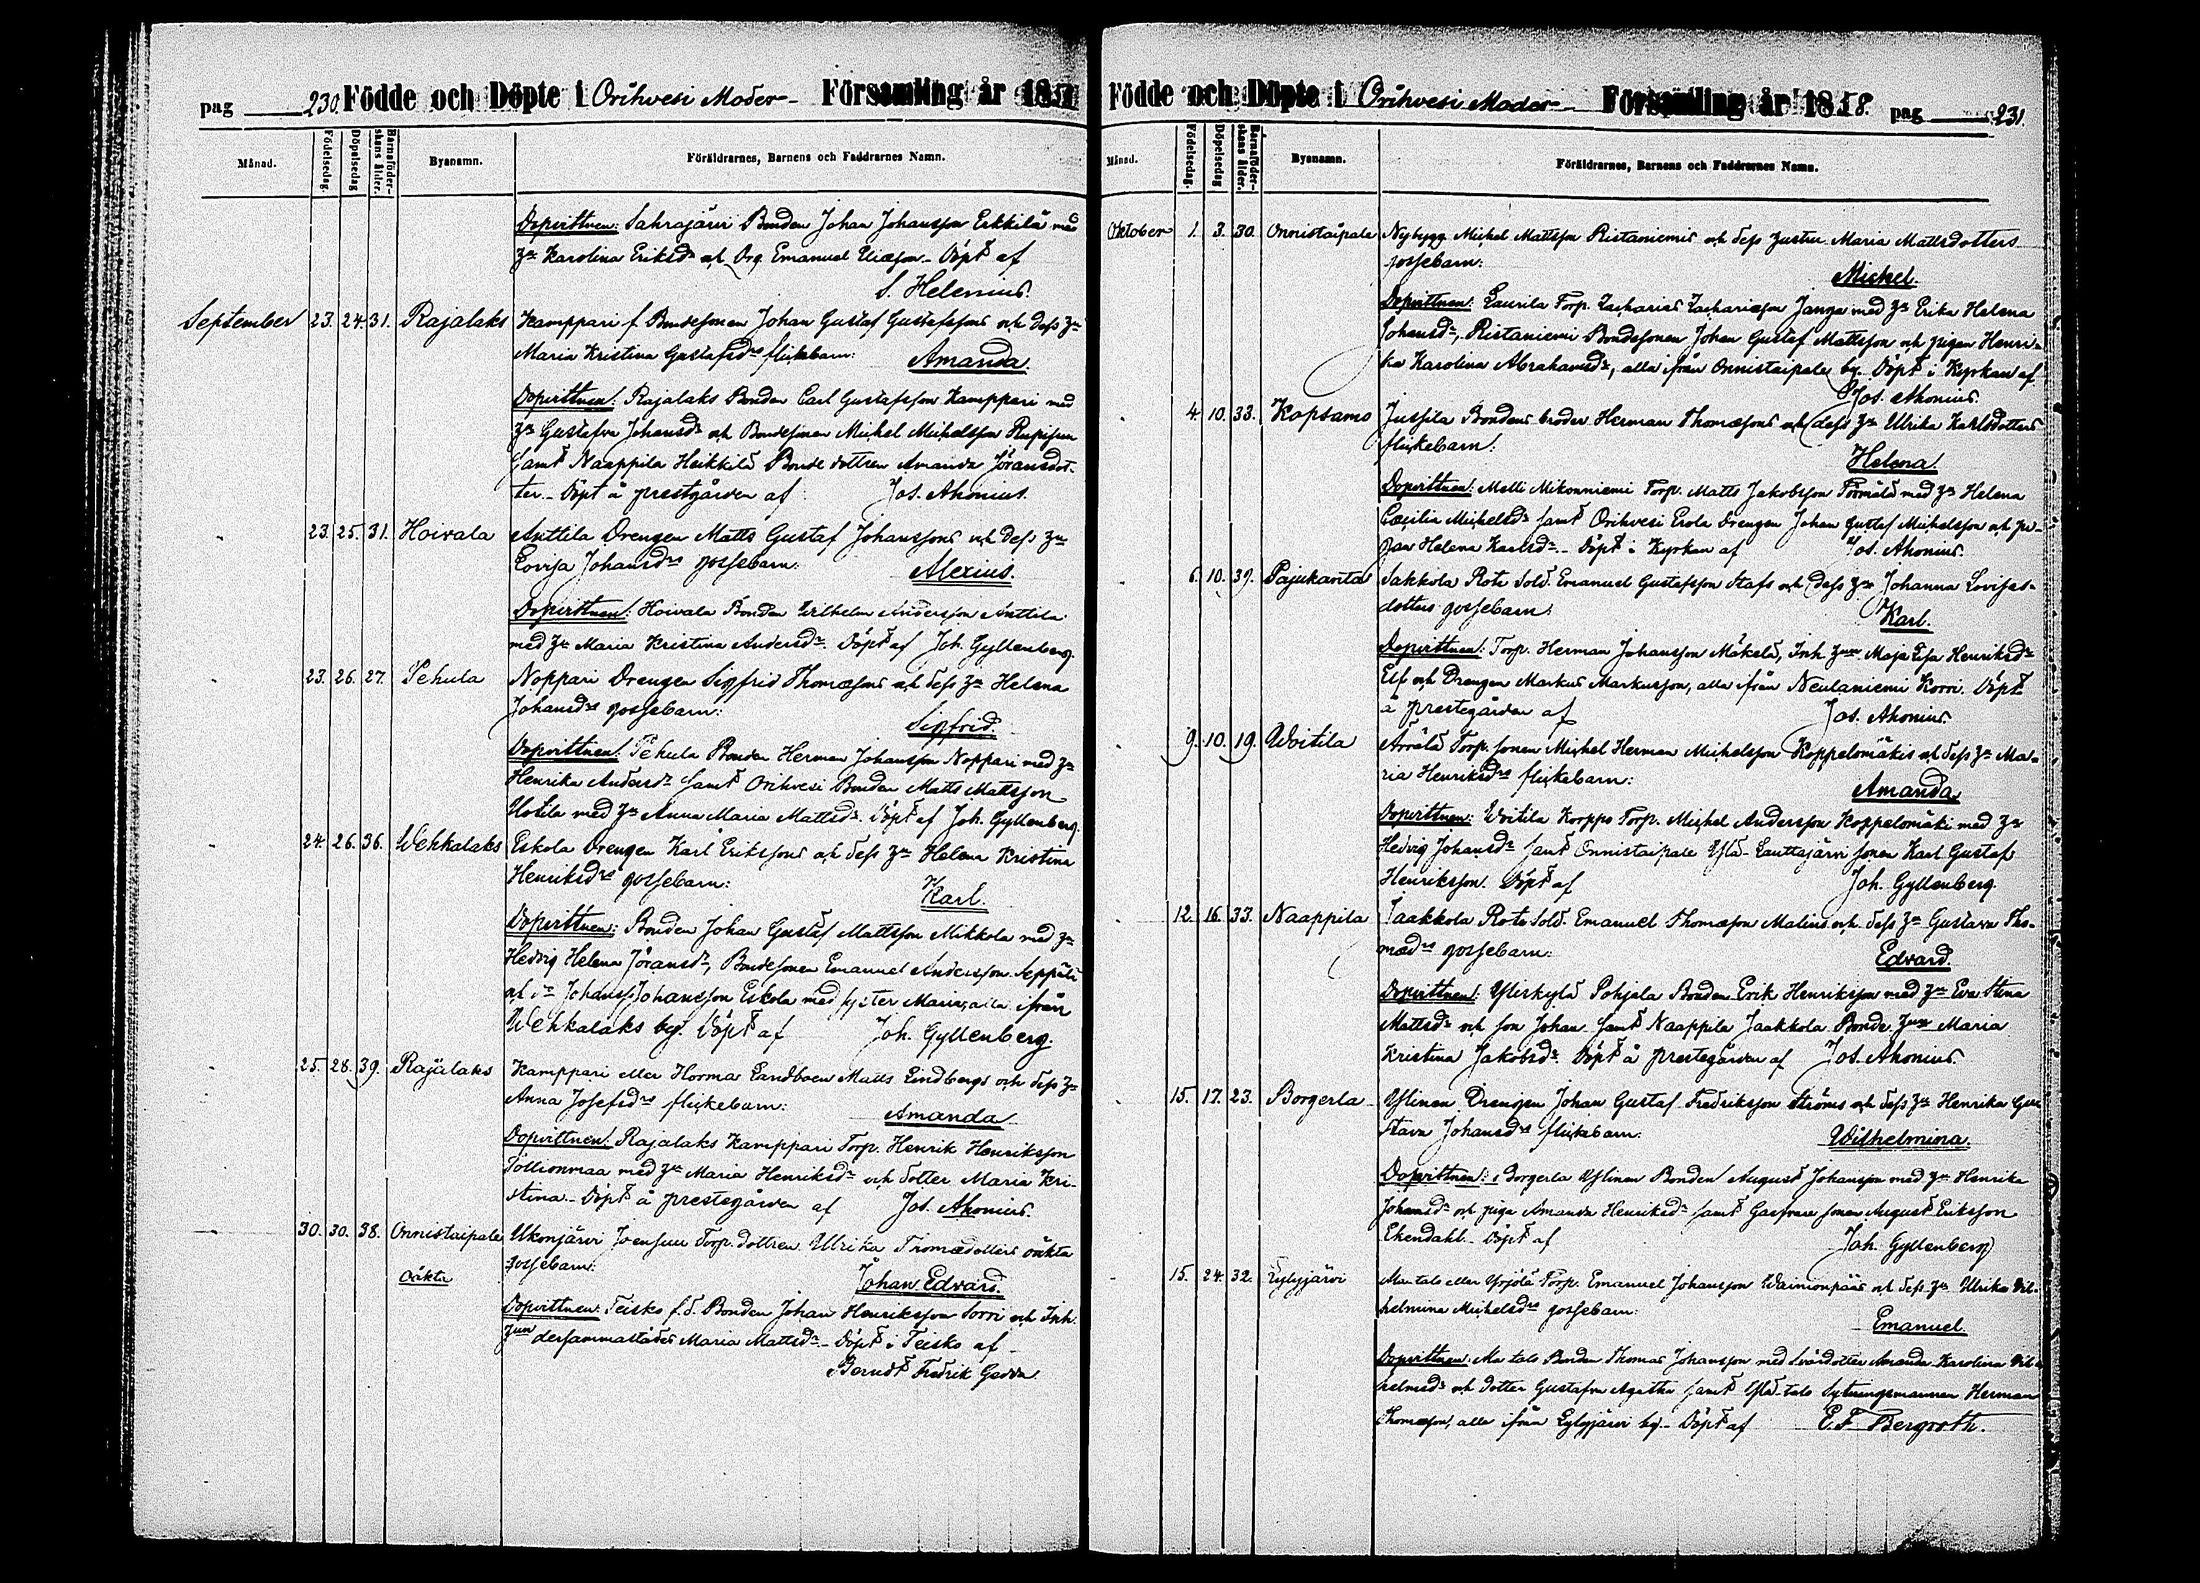 pag 230. Födde och Döpte i Orihvesi Moder- Församling år 185
Månad. Födelsedag. Döpelsedag Barnaföderskans ålder. Bysnamn. Föräldrarnes, Barnens och Faddrarnes Namn.
Dopvittnen: Sahrajärvi Bonden Johan Johansson Erkkilä med
hu Karolina Eriksdr och Drg. Emanuel Eliæson. Döpt af
S. Helenius.
September 23. 24. 31. Rajalaks Kamppari f. Bondesonen Johan Gustaf Gustafssons och dess hu
Maria Kristina Gustafsdrs flickebarn: Amanda.
Dopvittnen: Rajalaks Bonden Carl Gustafsson Kamppari med
hu Gustafva Johansdr och Bondesonen Michel Michelsson
samt Naappila Heikkilä Bonde dottren Amanda Jöransdot-
ter. Döpt å prestgården af Jos. Ahonius.
23. 25. 31. Hoivala Anttila Drengen Matts Gustaf Johanssons och dess hu
Lovisa Johansdrs gossebarn: Alexius.
Dopvittnen: Hoivala Bonden Wilhelm Andersson Anttila
med hu Maria Kristina Andersdr. Döpt af Joh. Gyllenberg.
23. 26. 27. Pehula Noppari Drengen Sigfrid Thomæsons och dess hu Helena
Johansdrs gossebarn: Sigfrid.
Dopvittnen: Pehula Bonden Herman Johansson Noppari med hu
Henrika Andersdr samt Orihvesi Bonden Matts Mattsson
Uotila med hu Anna Maria Mattsdr. Döpt af Joh. Gyllenberg.
24. 26. 36. Wehkalaks Eskola Drengen Karl Erikssons och dess hu Helena Kristina
Henriksdrs gossebarn: Karl.
Dopvittnen: Bonden Johan Gustaf Mattsson Mikkola med hu
Hedvig Helena Jöransdr, Bondesonen Emanuel Andersson Seppälä
och Johansson Eskola med syster Maria, alla ifrån
Wehkalaks by. Döpt af Joh. Gyllenberg.
25. 28. 39. Rajalaks Kamppari eller Horma Landboen Matts Lindbergs och dess hu
Anna Josefsdrs flickebarn: Amanda
Dopvittnen: Rajalaks Kamppari Torp. Henrik Henriksson
med hu Maria Henriksdr och dotter Maria Kri-
stina. Döpt å prestegården af Jos. Ahonius.
30. 30. 38. Onnistaipale Ukonjärvi Joensuu Torp. dottren Ulrika Tromædotters oäkta
gossebarn:
Oäkta Johan Edvard.
Dopvittnen: Teisko f.d. Bonden Johan Henriksson Sorri och Inh.
hun dersammastädes Maria Mattsdr. Döpt i Teisko af
Berndt Fredrik Gadda
Födde och Döpte i Orihvesi Moder- Församling år 1858. pag 231.
Månad. Födelsedag. Döpelsedag Barnaföderskans ålder. Bysnamn. Föräldrarnes, Barnens och Faddrarnes Namn.
Oktober 1. 3. 30. Onnistaipale Nybygg. Michel Mattsson Ristaniemis och dess hustru Maria Mattsdotters
gossebarn: Michel.
Dopvittnen: Laurila Torp. Zacharias Zachariæson Janga med hu Erika Helena
Johansdr, Ristaniemi Bondesonen Johan Gustaf Mattsson och pigan Henri-
ka Karolina Abrahamsdr, alla ifrån Onnistaipale by. Döpt i Kyrkan af
Jos. Ahonius.
4. 10. 33. Kopsamo Jussila Bondens broder Herman Thomæsons och dess hu Ulrika Karlsdotters
flickebarn: Helena
Dopvittnen: Melli Mikonniemi Torp. Matts Jakobsson Törmälä med hu Helena
Cæcilia Michelsdr samt Orihvesi Erola Drengen Johan Gustaf Michelsson och pi-
gan Helena Karlsdr. Döpt i Kyrkan af Jos. Ahonius.
6. 10. 39. Pajukanta Sakkola Rote Sold. Emanuel Gustafsson Stafs och dess hu Johanna Lovisas-
dotters gossebarn: Karl.
Dopvittnen: Torp. Herman Johansson Mäkelä, Inh. hun Maja Lisa Henriksdr
Elf och Drengen Markus Markusson, alla ifrån Neulaniemi Korri. Döpt
å prestegården af Jos. Ahonius.
9. 10. 19. Woitila Arrälä Torp. sonen Michel Herman Michelsson Koppelomäkis och dess hu Ma-
ria Henriksdrs flickebarn: Amanda
Dopvittnen: Woitila Korppo Torp. Michel Andersson Koppelomäki med hu
Hedvig Johansdr samt Onnistaipale Lauttajärvi sonen Karl Gustaf
Henriksson. Döpt af Joh. Gyllenberg.
12. 16. 33. Naappila Jaakkola Rote Sold. Emanuel Thomæson Malins och dess hu Gustava Tho-
mædrs gossebarn: Edvard.
Dopvittnen: Yliskylä Pohjala Bonden Erik Henriksson med hu Eva Stina
Mattsdr och son Johan samt Naappila Jaakkola Bonde hun Maria
Kristina Jakobsdr. Döpt å prestegården af Jos. Ahonius.
15. 17. 23. Borgerla Ylinen Drengen Johan Gustaf Fredriksson Ströms och dess hu Henrika Gu-
stava Johansdrs flickebarn: Wilhelmina.
Dopvittnen: Borgerla Ylinen Bonden August Johansson med hu Henrika
Johansdr och piga Amanda Henriksdr samt sonen August Eriksson
Ekendahl. Döpt af Joh. Gyllenberg
15. 24. 32. Lylyjärvi Ala-talo eller Yrjölä Torp. Emanuel Johansson Wainionpääs och dess hu Ulrika Vil-
helmina Michelsdrs gossebarn: Emanuel
Dopvittnen: Ala talo Bonden Thomas Johansson med Amanda Karolina Vil-
helmsdr och dotter Gustafva Agatha samt Ylä-talo Sytningsmannen Herman
Thomæson, alla ifrån Lylyjärvi by. Döpt af E. F. Bergroth.